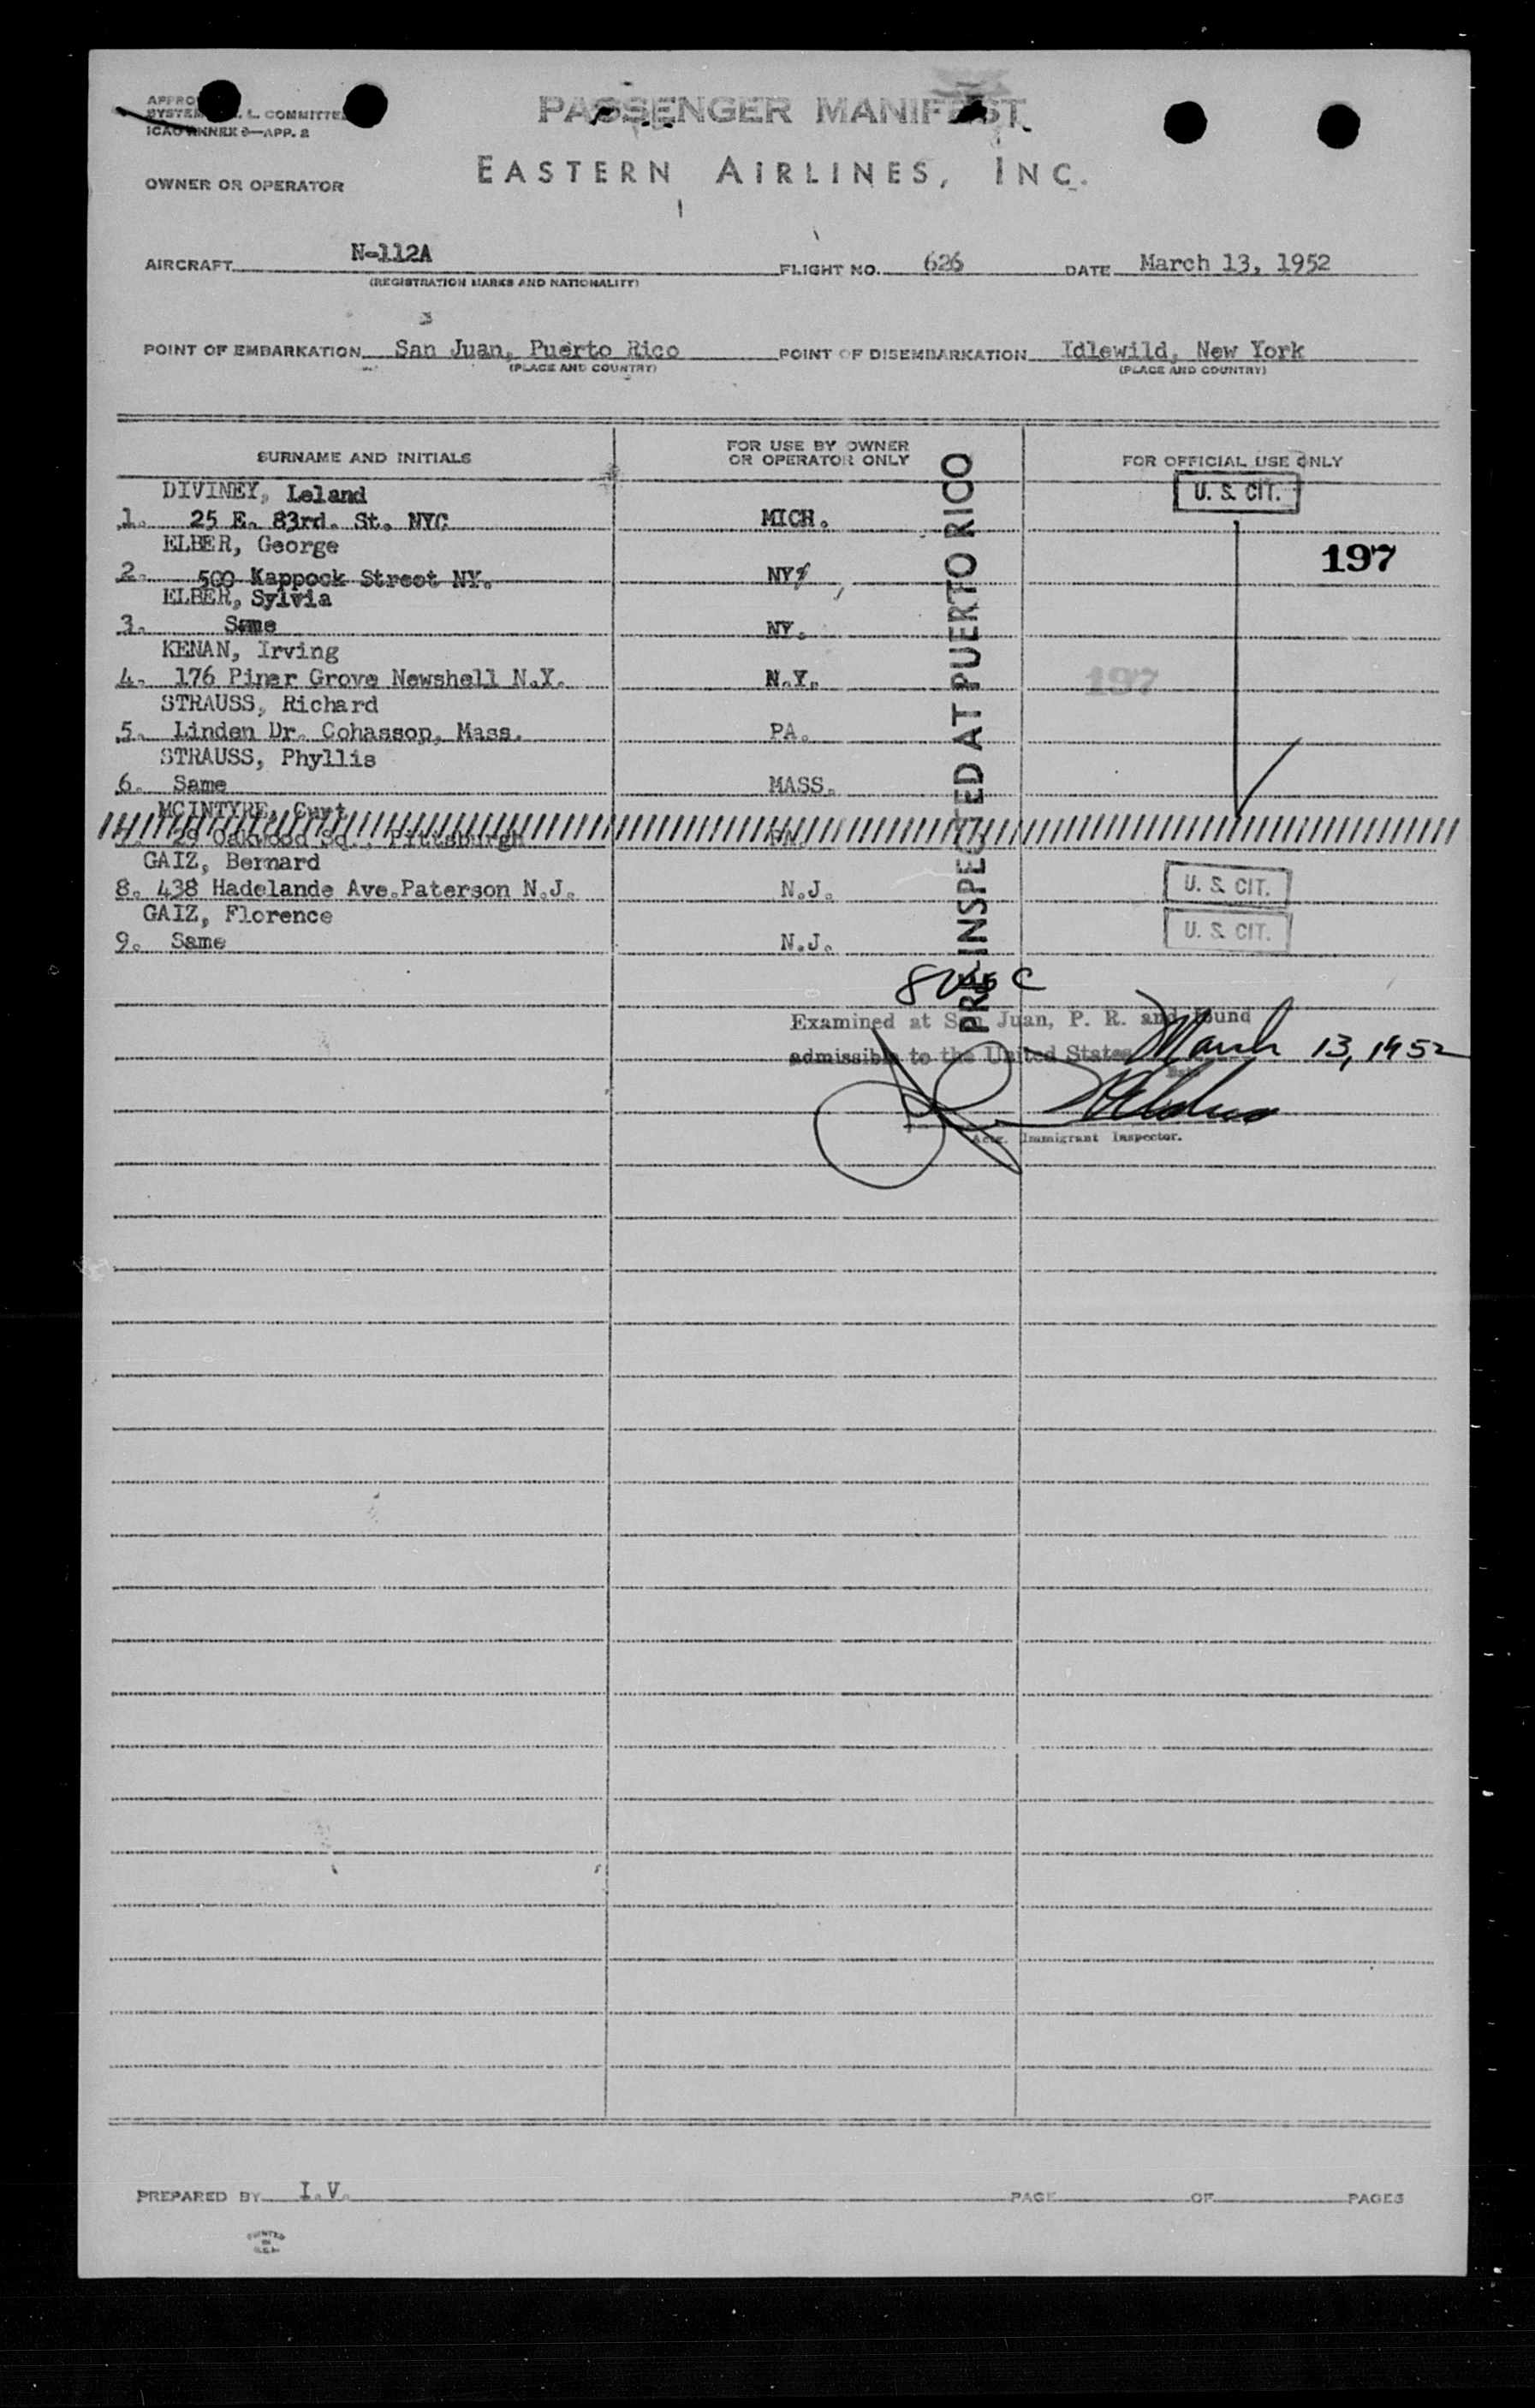 PASSENGER MANIFEST
SYSTEM COMMITTEE
ICAO ANNEX 9—APP. 2
EASTERN AIRLINES, INC.
OWNER OR OPERATOR
AIRCRAFT N-112A FLIGHT NO. 626 DATE March 13, 1952
(REGISTRATION MARKS AND NATIONALITY)
POINT OF EMBARKATION San Juan, Puerto Rico POINT OF DISEMBARKATION Idlewild, New York
(PLACE AND COUNTRY) (PLACE AND COUNTRY)
SURNAME AND INITIALS FOR USE BY OWNER OR OPERATOR ONLY FOR OFFICIAL USE ONLY
DIVINEY, Leland U. S. CIT.
1. 25 E. 83rd. St. NYC MICH.
ELBER, George 197
2. 500 Kappock Street NY. NY
ELBER, Sylvia
3. Same NY.
KENAN, Irving
4. 176 Piner Grove Newshell N.Y. N.Y. 197
STRAUSS, Richard
5. Linden Dr. Cohasson, Mass. PA.
STRAUSS, Phyllis
6. Same MASS.
MCINTYRE, Curt
7. 29 Oakwood Sq., Pittsburgh
GAIZ, Bernard
8. 438 Hadelande Ave.Paterson N.J. N.J. U. S. CIT.
GAIZ, Florence
9. Same N.J. U. S. CIT.
PRE-INSPECTED AT PUERTO RICO
8 USC
Examined at San Juan, P. R. and found
admissible to the United States March 13, 1952
Date
Actg. Immigrant Inspector.
PREPARED BY I.V. PAGE OF PAGES
PRINTED
IN
U.S.A.